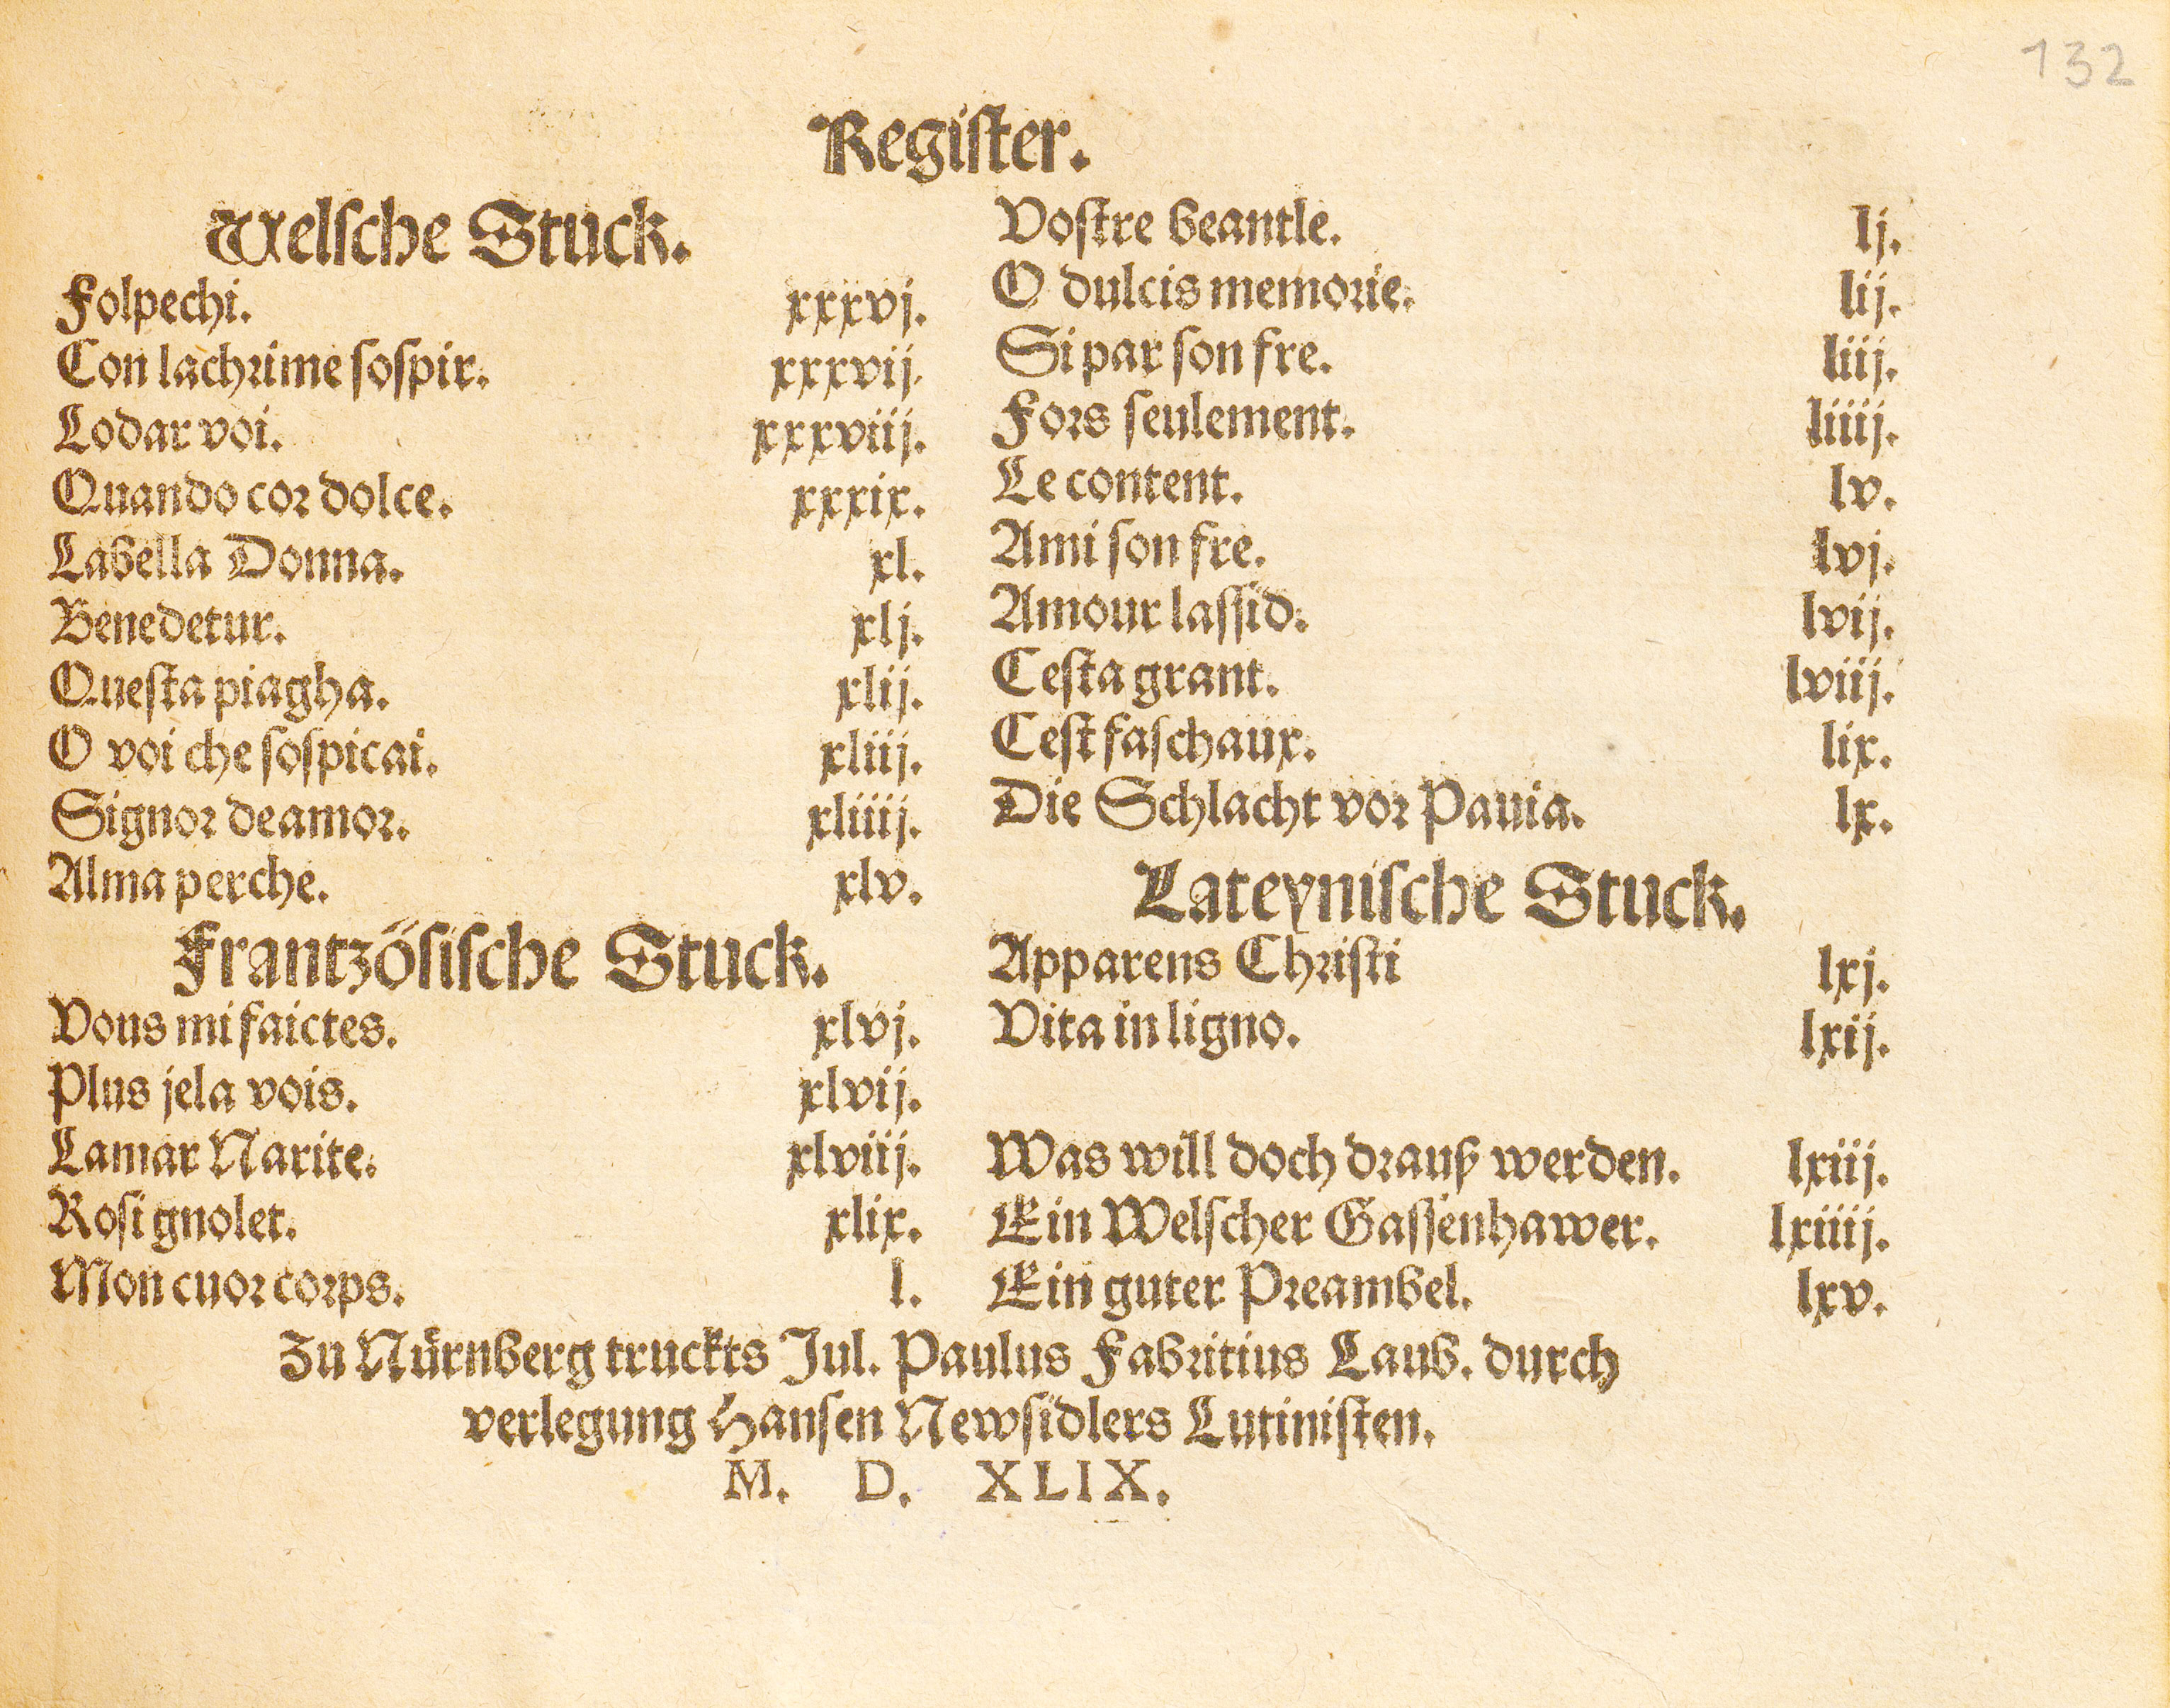 132
Register.
Welsche Stuck.
Folpechi. xxxvj.
Con lachrime sospir. xxxvij.
Lodar voi. xxxviij.
Quando cor dolce. xxxix.
Labella Donna. xl.
Benedetur. xlj.
Questa piagha. xlij.
O voi che sospicai. xliij.
Signor de amor. xliiij.
Alma perche. xlv.
Frantzösische Stuck.
Vous mi faictes. xlvj.
Plus jela vois. xlvij.
Lamar Narite. xlviij.
Rosignolet. xlix.
Mon cuor corps. l.
Vostre beantle. lj.
O dulcis memorie. lij.
Si par son fre. liij.
Fors seulement. liiij.
Le content. lv.
Ami son fre. lvj.
Amour lassid. lvij.
Cesta grant. lviij.
Cest faschaux. lix.
Die Schlacht vor Pauia. lx.
Lateynische Stuck.
Apparens Christi lxj.
Vita in ligno. lxij.
Was will doch drauß werden. lxiij.
Ein Welscher Gassenhawer. lxiiij.
Ein guter Preambel. lxv.
Zu Nürnberg truckts Jul. Paulus Fabritius Laub. durch
verlegung Hansen Newsidlers Lutinisten.
M. D. XLIX.